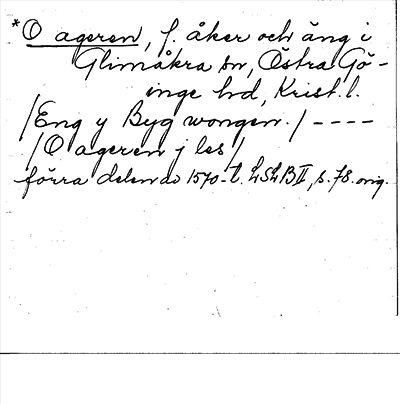 *O ageren, f. åker och äng i
Glimåkra sn, Östra Gö-
inge hd, Krist. l.
/Eng y Byg wongen./ ----
/O ageren j les/
förra delen av 1570-t. LSLB II, s. 78. orig.